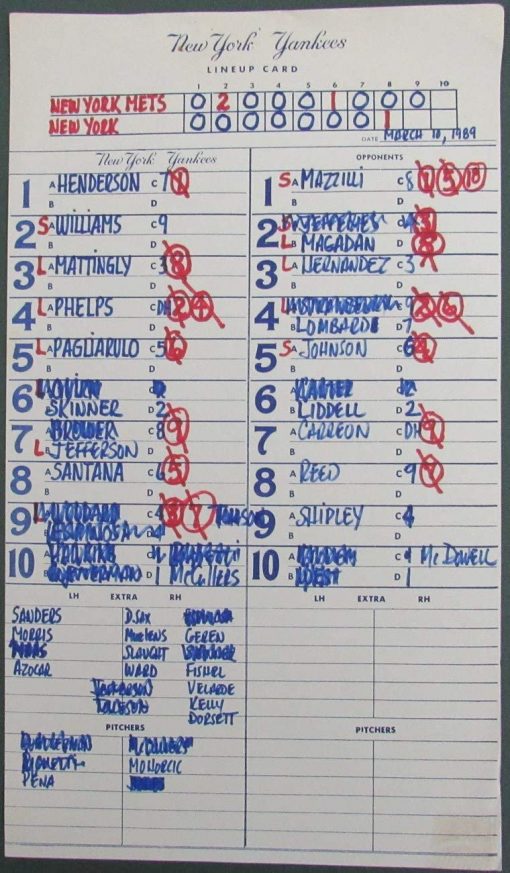 New York Yankees
LINEUP CARD
1 2 3 4 5 6 7 8 9 10
NEW YORK METS 0 2 0 0 0 1 0 0 0
NEW YORK 0 0 0 0 0 0 0 1
DATE MARCH 10, 1989
New York Yankees
1 A HENDERSON C 7
B D
2 S A WILLIAMS C 9
B D
3 L A MATTINGLY C 3 8
B D
4 L A PHELPS C DH 2 4
B D
5 L A PAGLIARULO C 5 6
B D
6
B SKINNER D 2
7 A BROWER C 8 9
L B JEFFERSON D
8 A SANTANA C 6 5
B D
9 L 7
10
B 1 McCULLERS
OPPONENTS
1 S A MAZZILLI C 8 1 5 10
B D
2 S A JEFFERIES
L B MAGADAN D 8
3 L A HERNANDEZ C 3
B D
4 L A STRAWBERRY C 9 6
B LOMBARDI D 7
5 S A JOHNSON C 6
B D
6 A CARTER C 2
B LIDDELL D 2
7 A CARREON C DH 9
B D
8 A REED C 9
B D
9 A SHIPLEY C 4
B D
10 A C 1 McDOWELL
B D 1
LH EXTRA RH
SANDERS D.SAX
MORRIS MUELENS GEREN
SLAUGHT
AZOCAR WARD FISHEL
VELARDE
KELLY
DORSETT
PITCHERS
MOHORCIC
PENA
LH EXTRA RH
PITCHERS